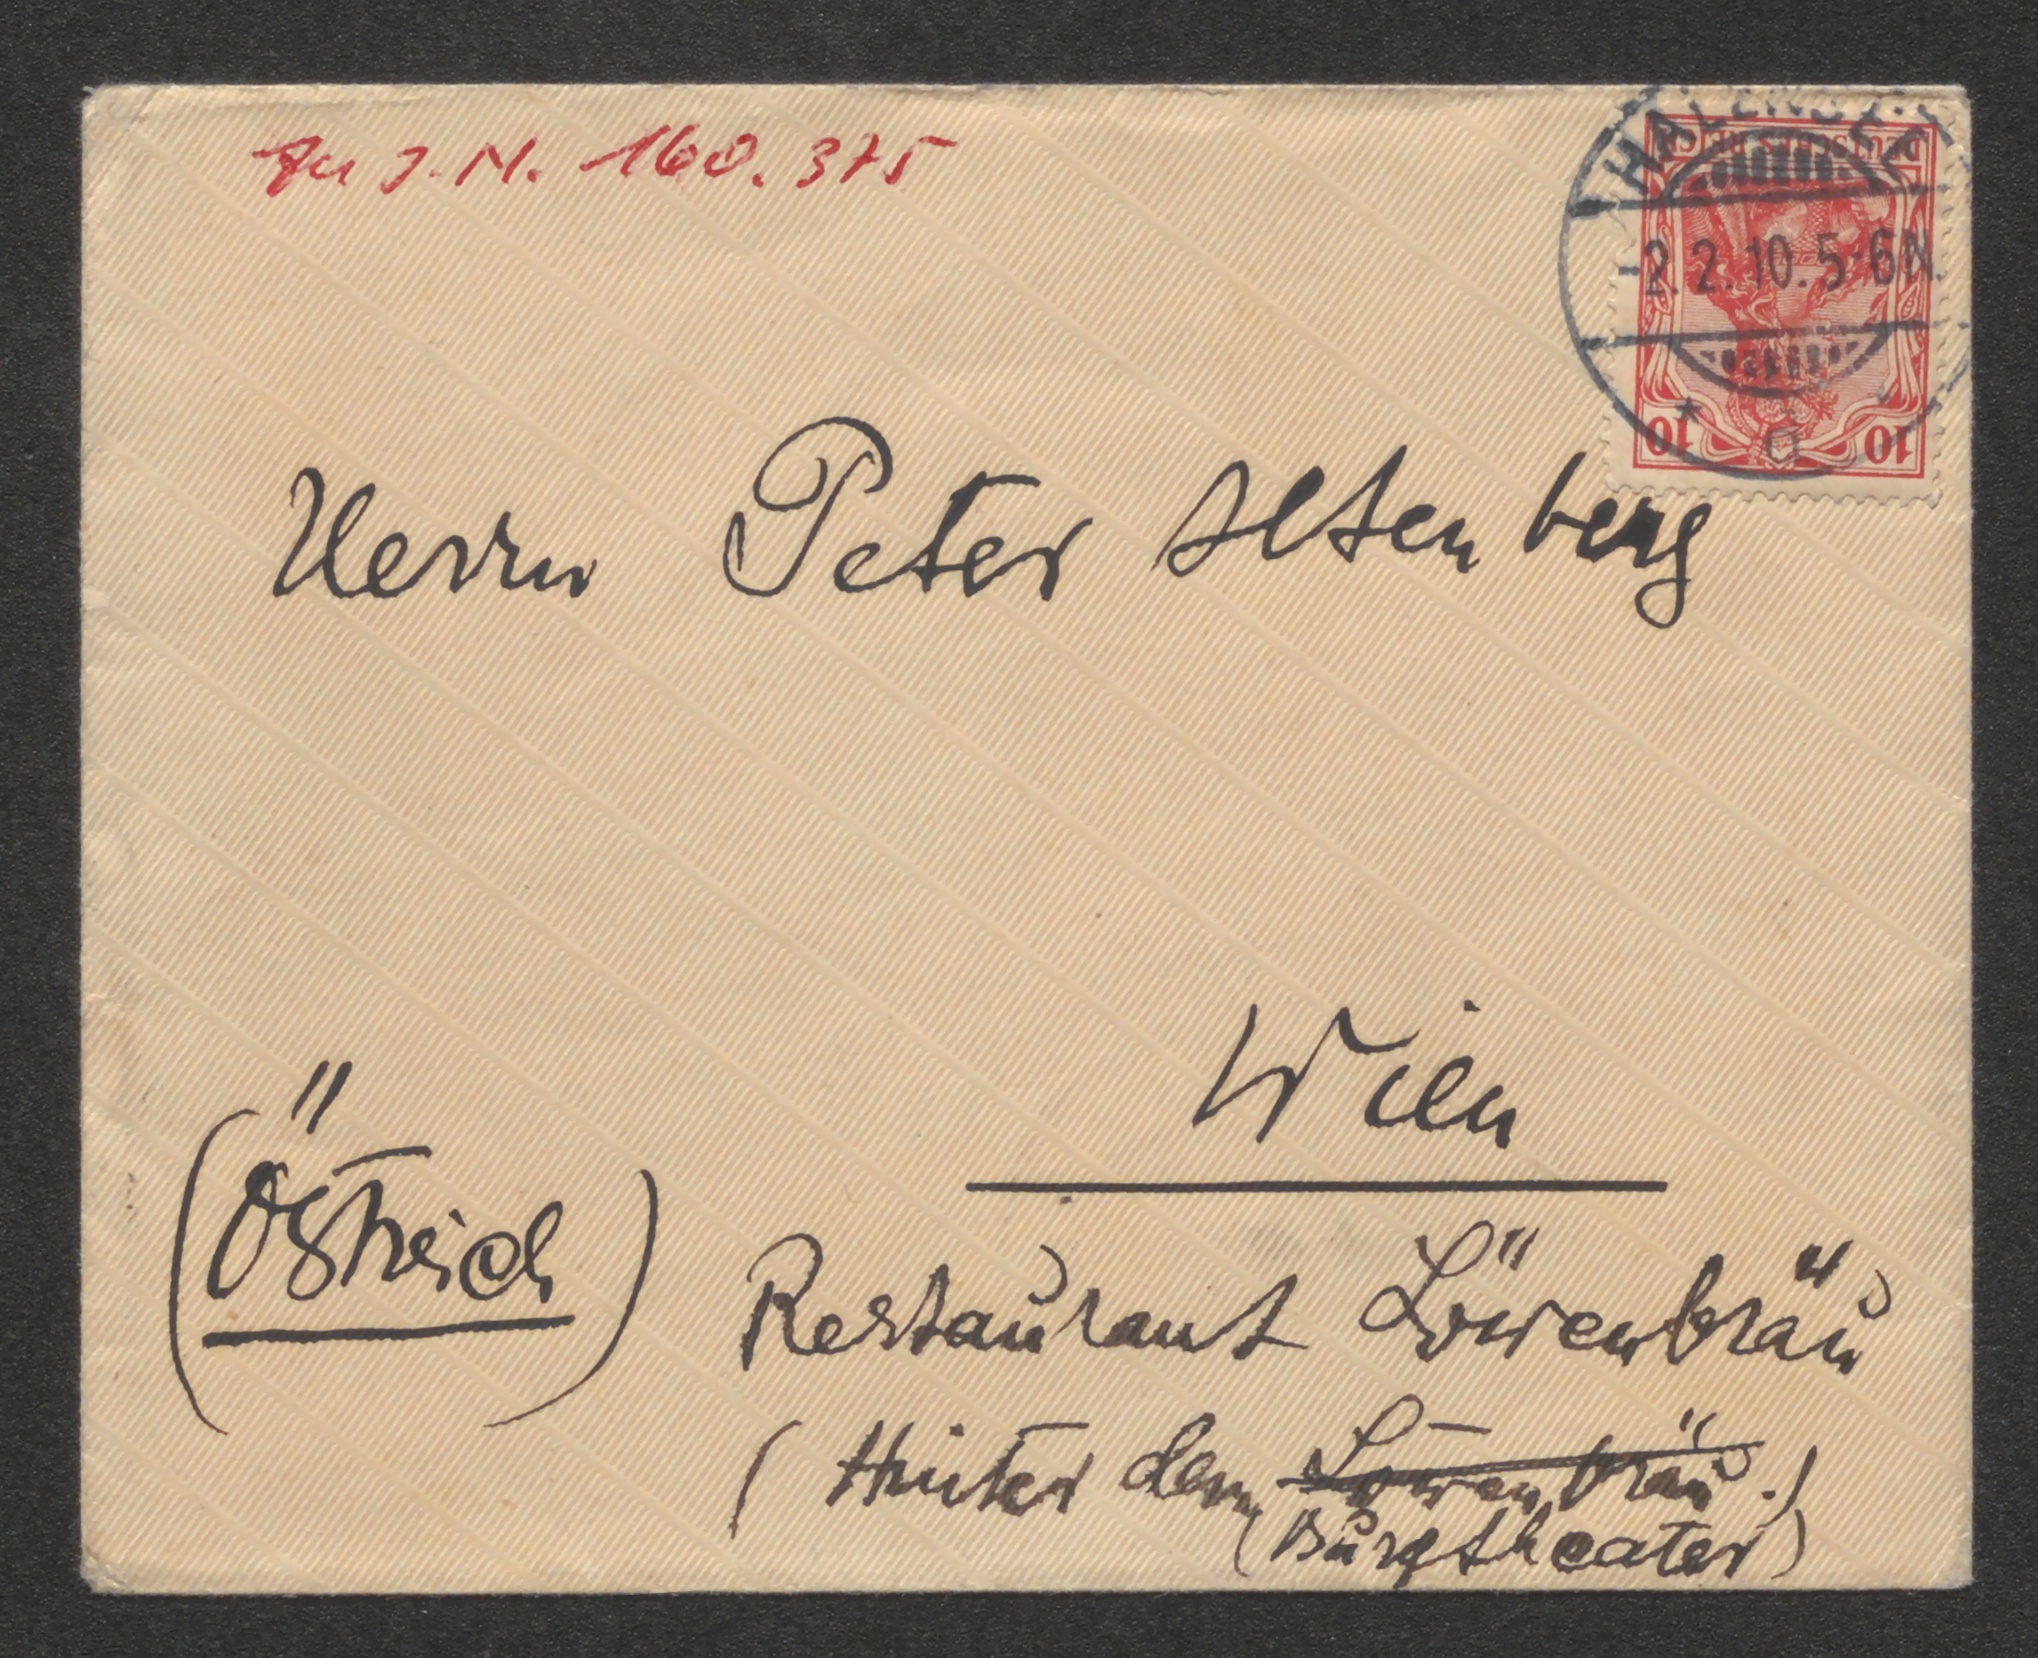 Zu J.N. 160.375
HALENSEE
-2.2.10.5-6N.
* a
DEUTSCHES REICH
10 10
Herrn Peter Altenberg
Wien
(Östreich)
Restaurant Löwenbräu
(Hinter dem Löwenbräu.)
(Burgtheater)